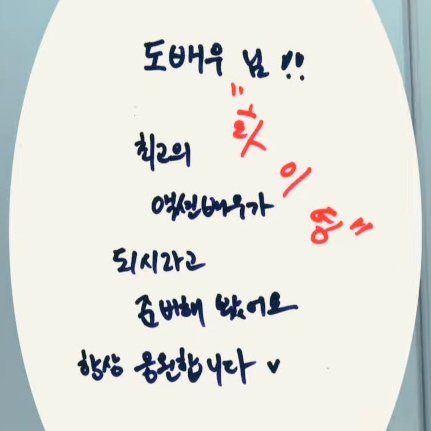 도배우 님 !!
"화이팅"
최고의
액션배우가
되시라고
준비해 봤어요
항상 응원합니다 ♥